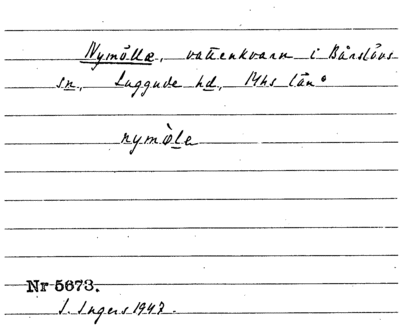 Nymölla, vattenkvarn i Bårslövs
sn., Luggude hd., Mhs län.
nymò̀la
Nr 5673.
I. Ingers 1947.